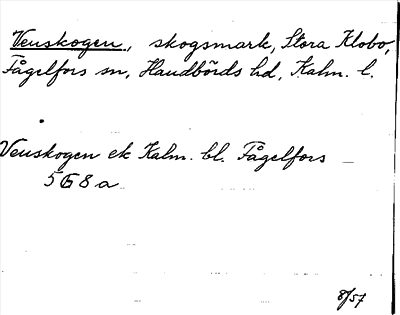 Venskogen, skogsmark, Stora Klobo,
Fågelfors sn, Handbörds hd, Kalm. l.
Venskogen ek Kalm. bl. Fågelfors
5G8a
8/57